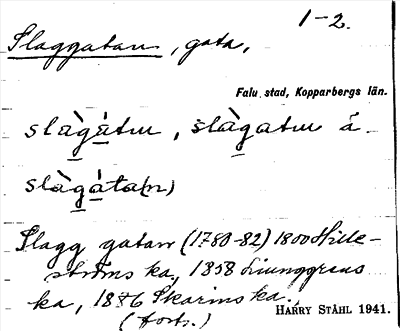 1-2.
Slaggatan, gata,
Falu stad, Kopparbergs län.
slàgátun, slàgatun å
slàgáta(n)
Slagg gatan (1780-82) 1800 Hille-
ströms ka, 1858 Liunggrens
ka, 1876 Skarins ka.
HARRY STÅHL 1941.
(forts.)